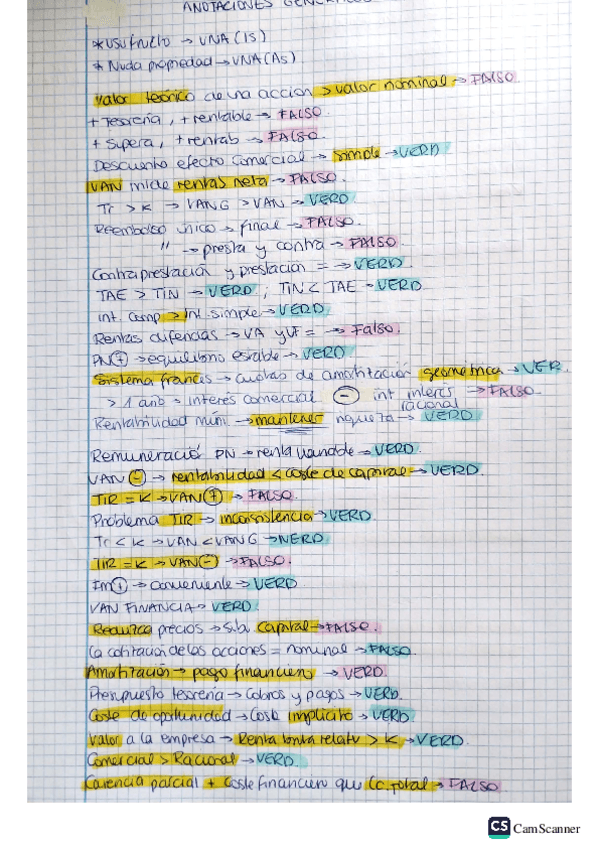 ANOTACIONES GENERALES
* Usufructo → VNA (IS)
* Nuda propiedad → VNA (AS)
Valor teórico de una acción > valor nominal → FALSO
+ Tesorería, + rentable → FALSO.
+ Supera, + rentab → FALSO.
Descuento efecto comercial → simple → VERD
VAN mide rentas neta → FALSO.
Tr > K → VANG > VAN → VERD
Reembolso único → final → FALSO.
" → presta y contra → FALSO.
Contraprestación y prestación = → VERD.
TAE > TIN → VERD ; TIN < TAE → VERD
int. comp > int. simple → VERD
Rentas diferidas → VA y VF = → Falso.
FN⊕ → equilibrio estable → VERD
Sistema francés → cuotas de amortización geométrica → VER.
> 1 año = interés comercial ⊖ int interés racional → FALSO.
Rentabilidad mín. → mantener riqueza → VERD
Remuneració PN → renta variable → VERD.
VAN ⊖ → rentabilidad < coste de capital → VERD.
TIR = K → VAN ⊕ → FALSO.
Problema TIR → inconsistencia → VERD.
Tr < K → VAN < VANG → VERD.
TIR = K → VAN ⊖ → FALSO.
FM⊕ → conveniente → VERD
VAN FINANCIA → VERD.
precios → sub. capital → FALSO.
La cotización de las acciones = nominal → FALSO.
Amortización → pago financien → VERD.
Presupuesto tesorería → Cobros y pagos → VERD.
Coste de oportunidad → Coste implícito → VERD
Valor a la empresa → Renta relatv > K → VERD.
Comercial > Racional → VERD.
Carencia parcial + coste financien que Cc. total → FALSO.
CS CamScanner